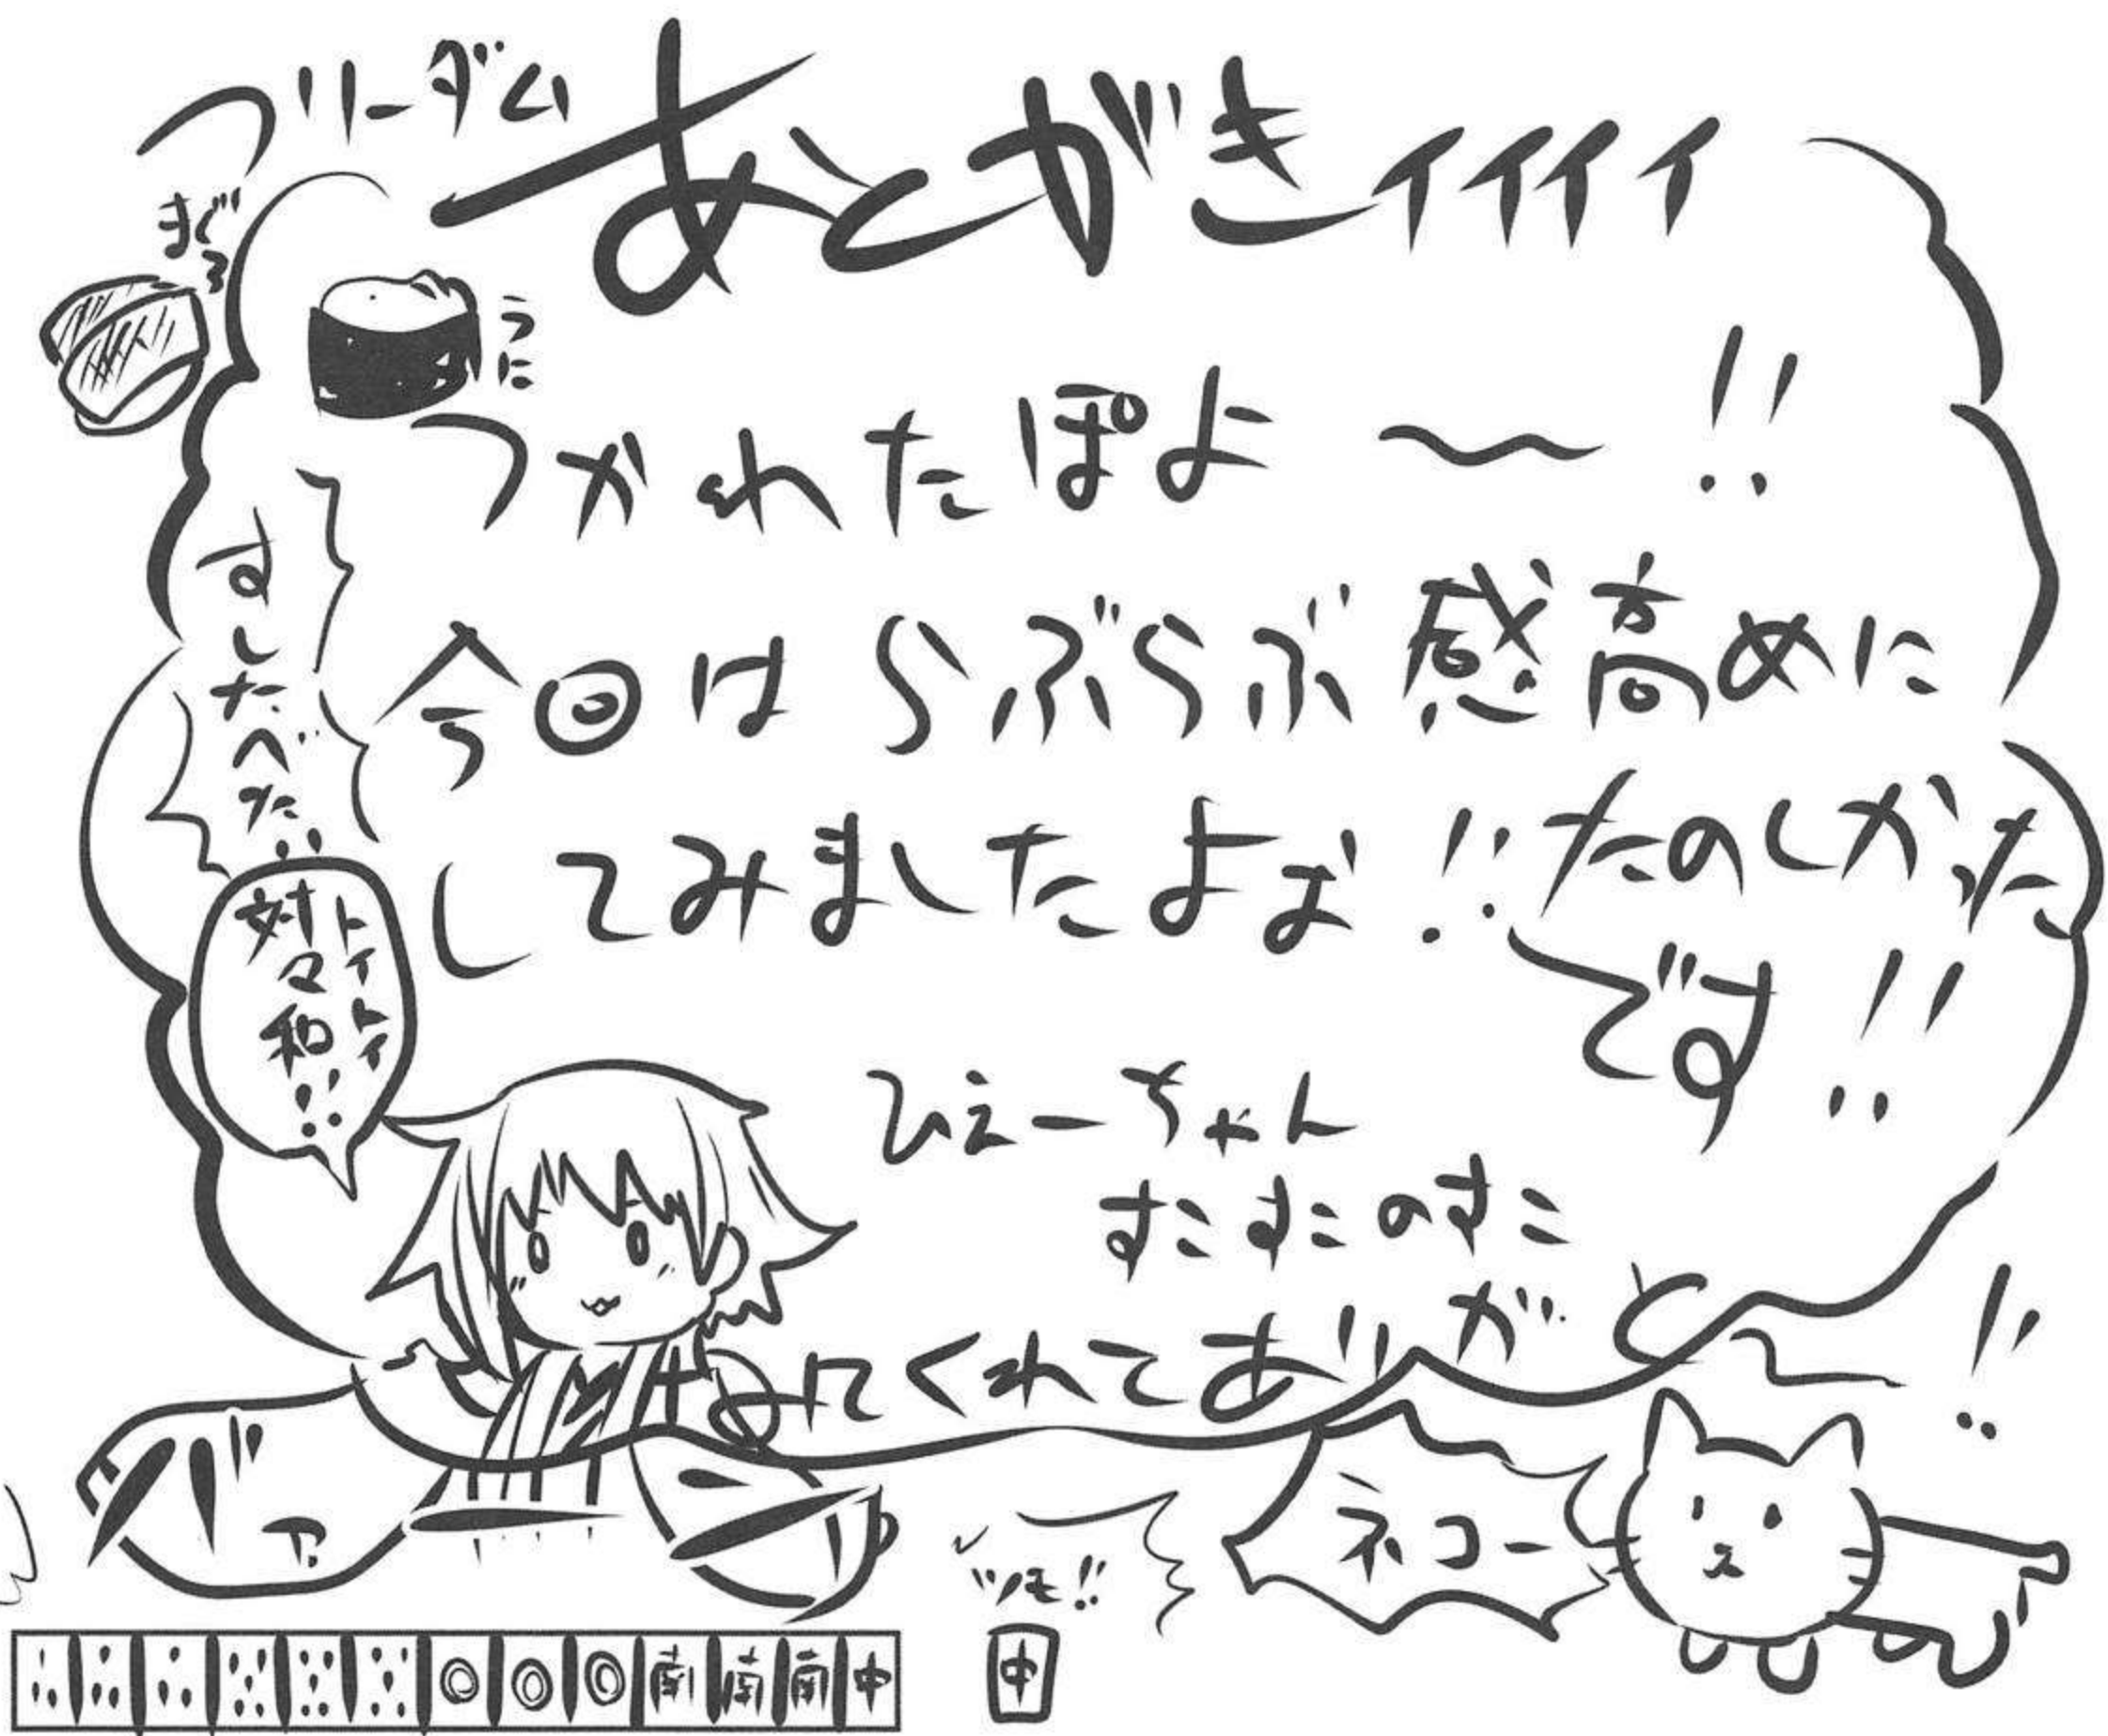 フリーダム
あとがきィィィィ
まぐろ
うに
つかれたぽよ〜!!
今回はらぶらぶ感高めに
してみましたよぉ!!たのしかった
です!!
すしたべた!!
トイトイ
対々和!!
ひえーちゃん
すこすこのすこ
みてくれてありがと〜!!
ババァ
ネコー
ツモ!!
南 南 南 中
中